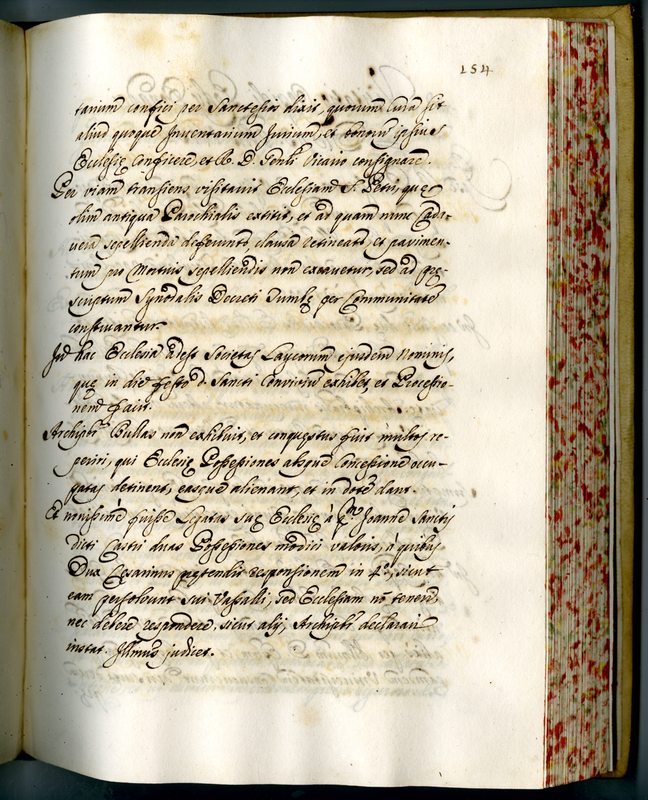 154
tarium confici per Sanctesios dixit, quorum cura sit
aliud quoque Inventarium Iurium, et bonorum ipsius
Ecclesię conficere, et Ill. D. Genli Vicario consignare.
Per viam transiens visitavit Ecclesiam S. Petri, quę
olim antiqua Parochialis extitit, et ad quam nunc Cada-
vera sepellienda deferuntur, clausa retineatur, et pavimen-
tum pro Mortuis sepelliendis non excavetur, sed ad prę-
scriptum Synodalis Decreti Tumbę per Communitatem
construantur.
In hac Ecclesia adest Societas Laycorum ejusdem Nominis,
quę in die festo d. Sancti Convivium exhibet, et Processio-
nem facit.
Archipbr Bullas non exhibuit, et conquestus fuit multos re-
periri, qui Ecclesię Possessiones absque Concessione occu-
patas detinent, easque alienant, et in dotem dant.
Et novissime fuisse Legatas suę Ecclesię à Joanne Sanctis
dicti Castri duas Possessiones modici valoris, à quibus
Dux Cęsarinus prętendit responsionem in 4.ª, sicut
eam persolvunt sui Vassalli, sed Ecclesiam nõ teneri,
nec debere respondere, sicut alij, Archipbr declarari
instat. Illmus judicet.